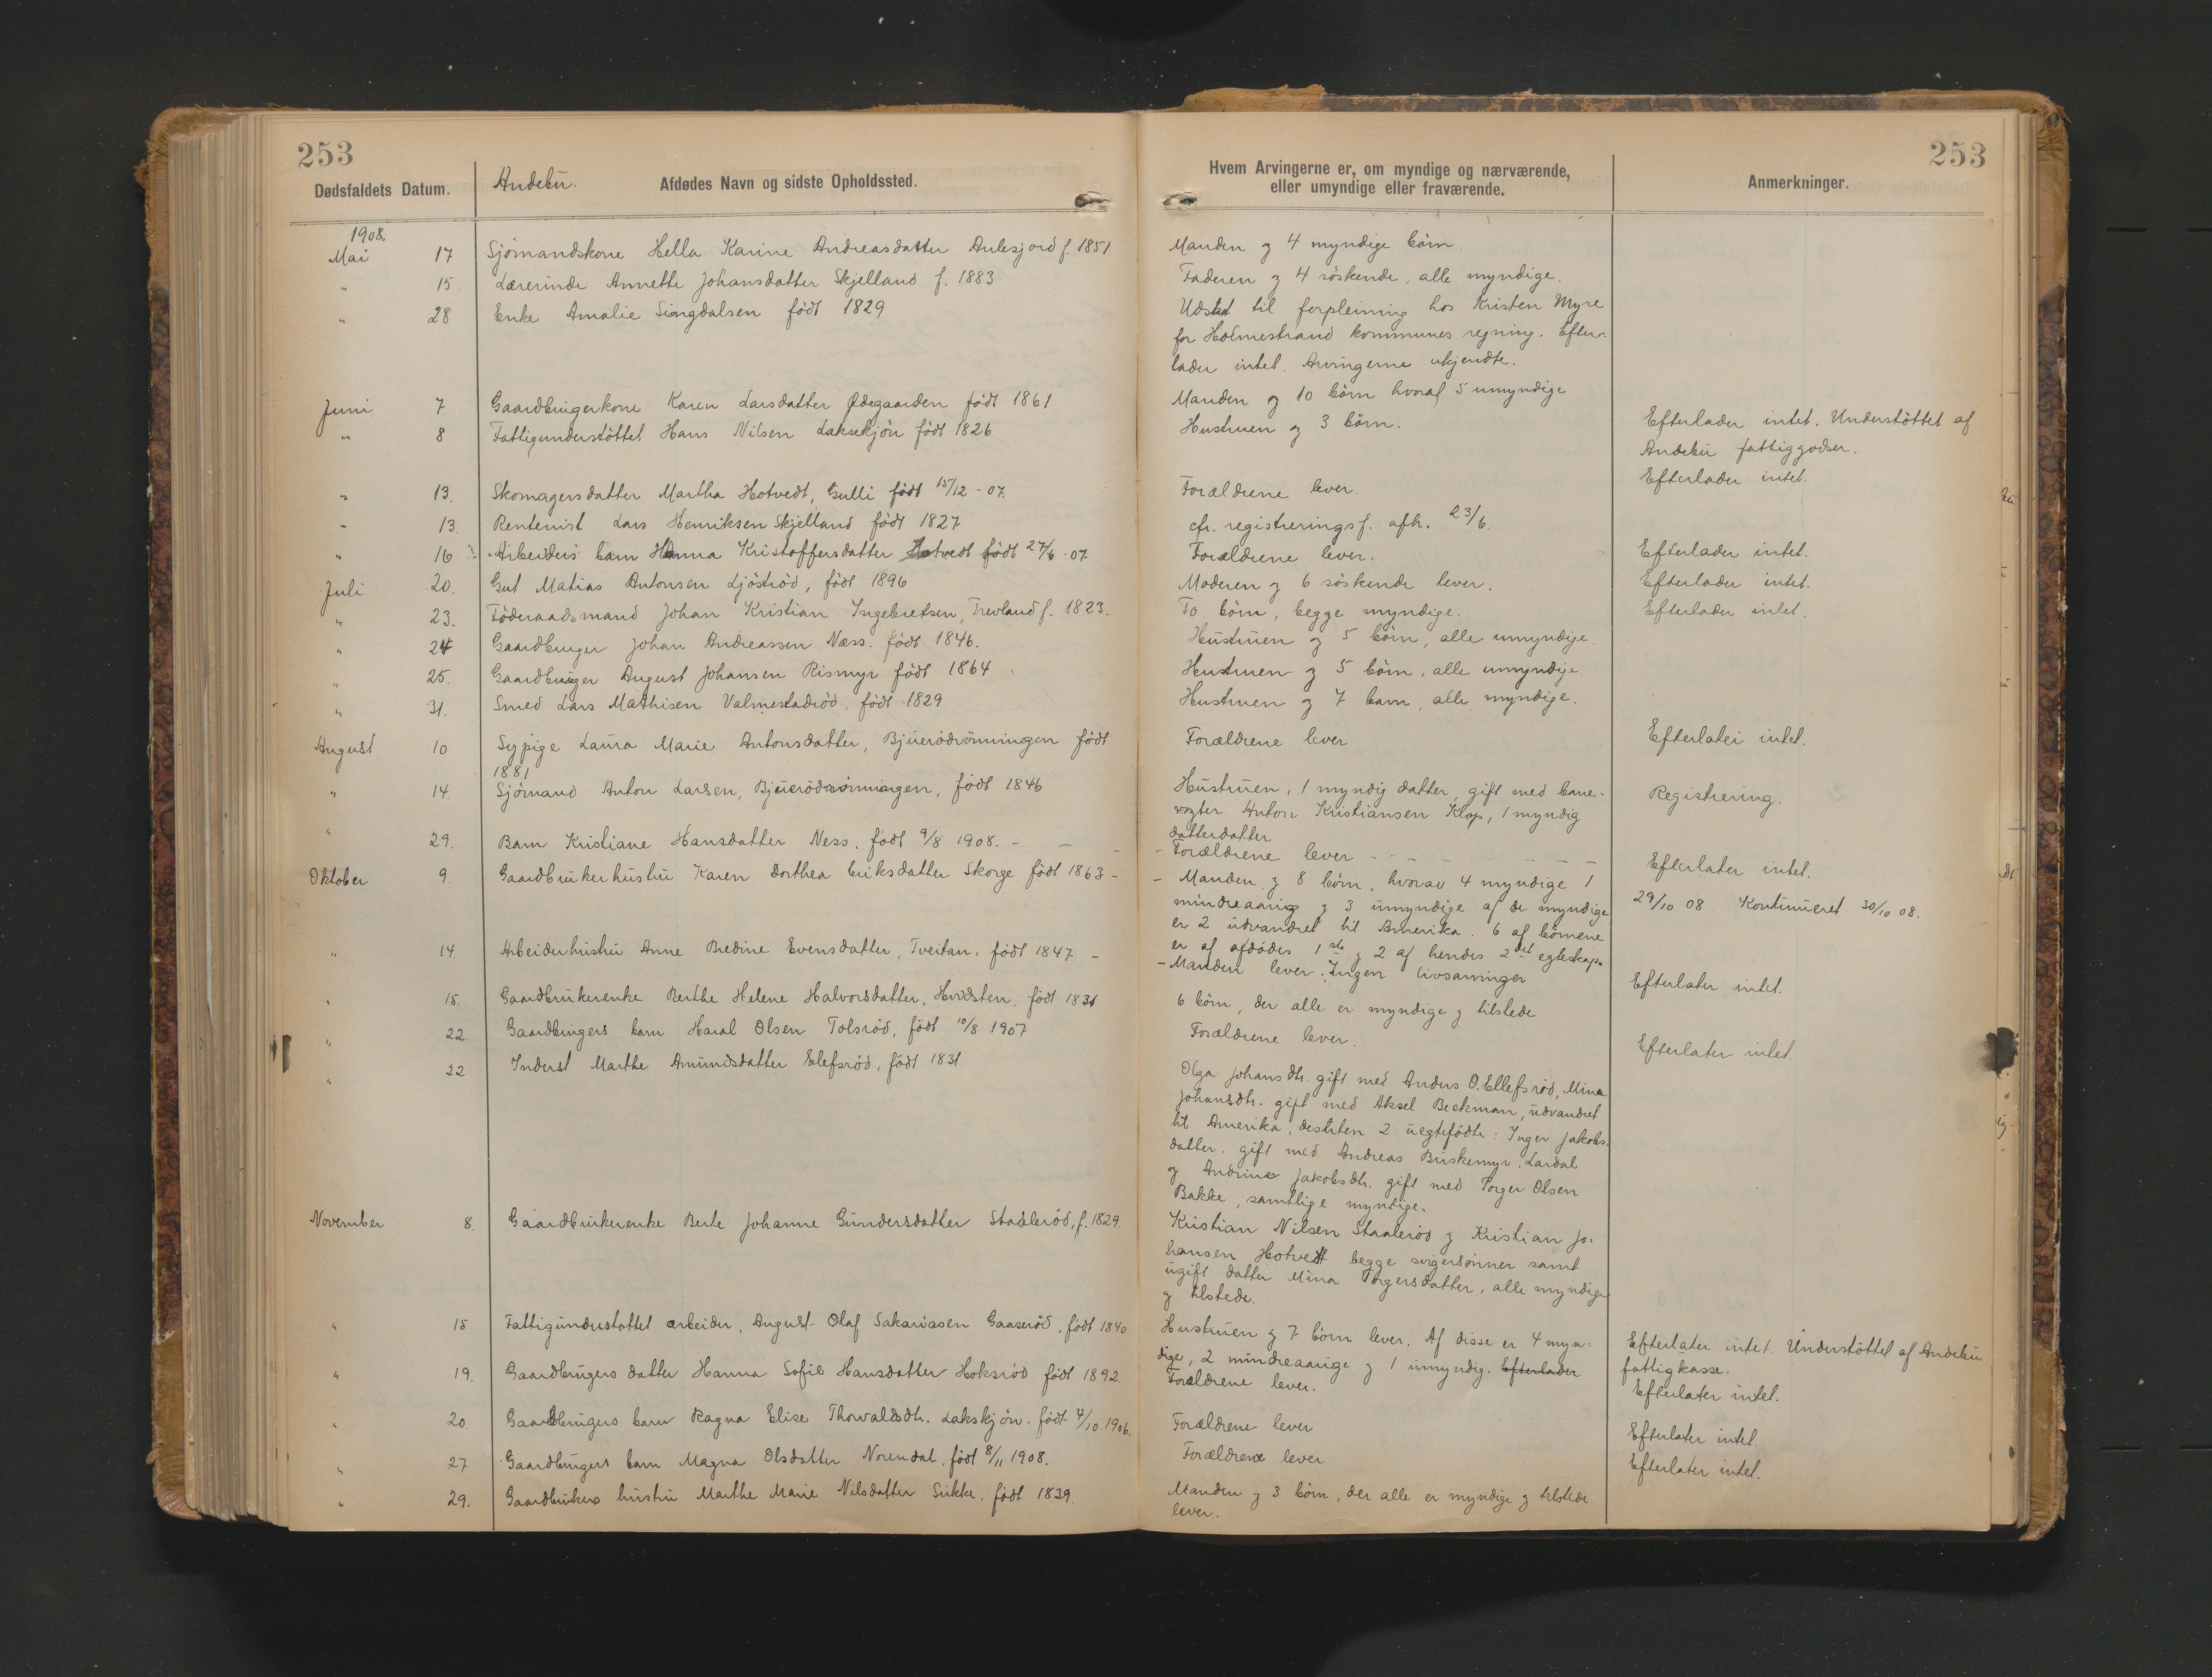 253
253
Dødsfaldets Datum.
Andebu.
Afdødes Navn og sidste Opholdssted.
Hvem Arvingerne er, om myndige og nærværende,
eller umyndige eller fraværende.
Anmerkninger.
1908.
Mai 17 Sjömandskone Hella Karine Andreasdatter Aulesjord f. 1851 Manden og 4 myndige börn.
" 15 Lærerinde Annette Johansdatter Skjelland f. 1883 Faderen og 4 söskende, alle myndige.
" 28 Enke Amalie Siongdalsen födt 1829 Udsted til forpleining hos Kristen Myre
for Holmestrand kommunes regning. Efter-
lader intet. Arvingerne ukjendte.
Juni 7 Gaardbrugerkone Karen Larsdatter Ödegaarden födt 1861 Manden og 10 börn hvoraf 5 umyndige
" 8 Fattigunderstöttet Hans Nilsen Laksekjön födt 1826 Hustruen og 3 börn. Efterlader intet. Understöttet af
Andebu fattiggodser.
" 13. Skomagersdatter Martha Hotvedt, Gulli födt 15/12 - 07. Forældrene lever. Efterlader intet.
" 13. Rentenist Lars Henriksen Skjelland födt 1827 cfr. registreringsf. afh. 23/6.
" 16 Arbeiders barn Hanna Kristoffersdatter Hotvedt födt 27/6 - 07. Forældrene lever. Efterlader intet.
Juli 20. Gut Matias Antonsen Ljöströd, födt 1896 Moderen og 6 söskende lever. Efterlader intet.
" 23. Föderaadsmand Johan Kristian Ingebretsen, Trevland f. 1823. To börn, begge myndige. Efterlader intet.
" 24 Gaardbruger Johan Andreassen Næss. födt 1846. Hustruen og 5 börn, alle umyndige.
" 25. Gaardbruger August Johansen Rismyr födt 1864 Hustruen og 5 börn, alle umyndige
" 31. Smed Lars Mathisen Valmestadröd, födt 1829 Hustruen og 7 barn, alle myndige.
August 10 Sypige Laura Marie Antonsdatter, Bjuerödrönningen födt
1881 Forældrene lever Efterlater intet.
" 14. Sjömand Anton Larsen, Bjuerödrönningen, födt 1846 Hustruen, 1 myndig datter, gift med bane-
vogter Anton Kristiansen Klop, 1 myndig
datterdatter Registrering.
" 29. Barn Kristiane Hansdatter Ness. födt 9/8 1908. - Forældrene lever - Efterlater intet.
Oktober 9. Gaardbrukerhustru Karen Dorthea Eriksdatter Skorge födt 1863 - Manden og 8 börn, hvorav 4 myndige 1
mindreaarig og 3 umyndige af de myndige
er 2 udvandret til Amerika. 6 af börnene
er af afdödes 1ste og 2 af hendes 2det egteskap. 29/10 08. Kontinueret 30/10 08.
" 14. Arbeiderhustru Anne Bredine Evensdatter, Tveitan. födt 1847 - Manden lever. Ingen livsarvinger Efterlater intet.
" 15. Gaardbrukerenke Berthe Helene Halvorsdatter, Hvidsten, födt 1831 6 börn, der alle er myndige og tilstede
" 22. Gaardbrugers barn Haral Olsen Tolsröd, födt 10/8 1907 Forældrene lever. Efterlater intet.
" 22 Inderst Marthe Amundsdatter Elefsröd, födt 1831 Olga Johansdtr. gift med Anders O. Ellefsröd, Mina
Johansdtr. gift med Aksel Beckman, udvandret
til Amerika, desuten 2 uegtefödte: Inger Jakobs-
datter, gift med Andreas Buskemyr, Lardal
og Andrine Jakobsdtr. gift med Torger Olsen
Bakke, samtlige myndige.
November 8. Gaardbrukerenke Berte Johanne Gundersdatter Staaleröd, f. 1829. Kristian Nilsen Staaleröd og Kristian Jo-
hansen Hotvedt begge svigersönner samt
ugift datter Mina Torgersdatter, alle myndige
og tilstede.
" 15 Fattigunderstöttet arbeider, August Olaf Sakariasen Gaaseröd, födt 1840 Hustruen og 7 börn lever. Af disse er 4 myn-
dige, 2 mindreaarige og 1 umyndig. Efterlader Efterlater intet. Understöttet af Andebu
fattigkasse.
" 19. Gaardbrugers datter Hanna Sofie Hansdatter Hoksröd födt 1892. Forældrene lever. Efterlater intet.
" 20. Gaardbrugers barn Ragna Elise Thorvaldsdtr. Lakskjön. födt 4/10 1906. Forældrene lever Efterlater intet.
" 27 Gaardbrugers barn Magna Olsdatter Norendal, födt 8/11 1908. Forældrene lever Efterlater intet.
" 29. Gaardbrukers hustru Marthe Marie Nilsdatter Sukke. födt 1839. Manden og 3 börn, der alle er myndige og tilstede
lever.